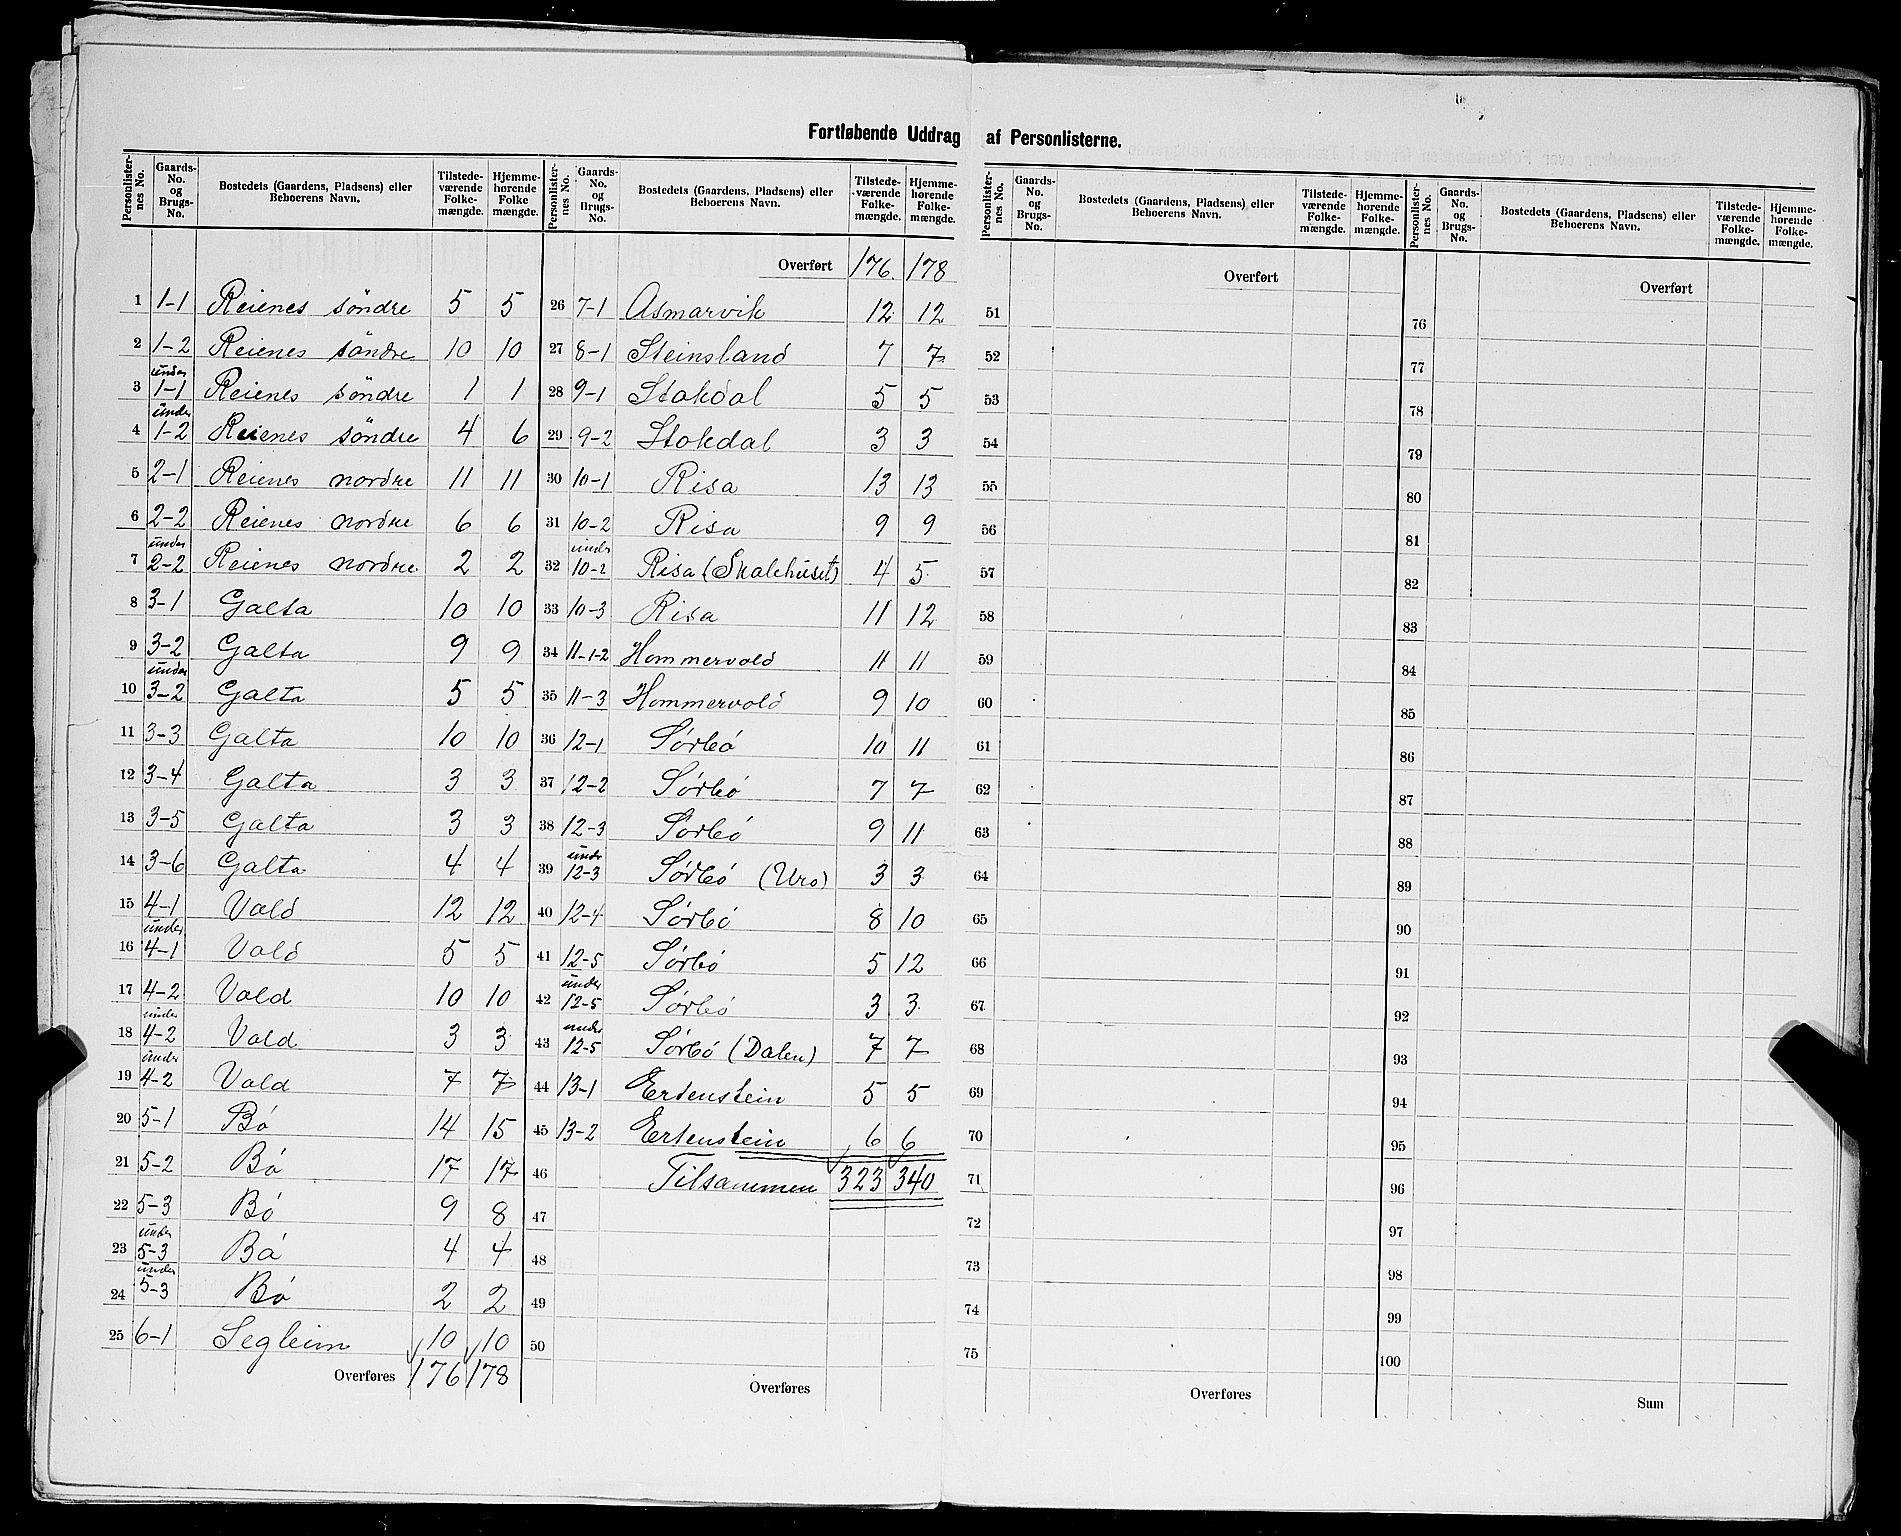 Fortløbende Uddrag af Personlisterne.
Personlister-nes No. | Gaards-No. og Brugs-No. | Bostedets (Gaardens, Pladsens) eller Beboerens Navn. | Tilstede-værende Folke-mængde. | Hjemme-hørende Folke mængde.
1 | 1-1 | Reienes söndre | 5 | 5
2 | 1-2 | Reienes söndre | 10 | 10
3 | under 1-1 | Reienes söndre | 1 | 1
4 | under 1-2 | Reienes söndre | 4 | 6
5 | 2-1 | Reienes nordre | 11 | 11
6 | 2-2 | Reienes nordre | 6 | 6
7 | under 2-2 | Reienes nordre | 2 | 2
8 | 3-1 | Galta | 10 | 10
9 | 3-2 | Galta | 9 | 9
10 | under 3-2 | Galta | 5 | 5
11 | 3-3 | Galta | 10 | 10
12 | 3-4 | Galta | 3 | 3
13 | 3-5 | Galta | 3 | 3
14 | 3-6 | Galta | 4 | 4
15 | 4-1 | Vold | 12 | 12
16 | under 4-1 | Vold | 5 | 5
17 | 4-2 | Vold | 10 | 10
18 | under 4-2 | Vold | 3 | 3
19 | under 4-2 | Vold | 7 | 7
20 | 5-1 | Bó | 14 | 15
21 | 5-2 | Bó | 17 | 17
22 | 5-3 | Bó | 9 | 8
23 | under 5-3 | Bó | 4 | 4
24 | under 5-3 | Bó | 2 | 2
25 | 6-1 | Segleim | 10 | 10
Overføres | 176 | 178
Personlister-nes No. | Gaards-No. og Brugs-No. | Bostedets (Gaardens, Pladsens) eller Beboerens Navn. | Tilstede-værende Folke-mængde. | Hjemme-hørende Folke-mængde.
Overført | 176. | 178
26 | 7-1 | Asmarvik | 12 | 12
27 | 8-1 | Steinsland | 7 | 7
28 | 9-1 | Stokdal | 5 | 5
29 | 9-2 | Stokdal | 3 | 3
30 | 10-1 | Risa | 13 | 13
31 | 10-2 | Risa | 9 | 9
32 | under 10-2 | Risa (Skalehuset) | 4 | 5
33 | 10-3 | Risa | 11 | 12
34 | 11-1-2 | Hommervold | 11 | 11
35 | 11-3 | Hommervold | 9 | 10
36 | 12-1 | Sørbó | 10 | 11
37 | 12-2 | Sørbó | 7 | 7
38 | 12-3 | Sørbó | 9 | 11
39 | under 12-3 | Sørbó (Uro) | 3 | 3
40 | 12-4 | Sørbó | 8 | 10
41 | 12-5 | Sørbó | 5 | 12
42 | under 12-5 | Sørbó | 3 | 3
43 | under 12-5 | Sørbó (Dalen) | 7 | 7
44 | 13-1 | Ertenstein | 5 | 5
45 | 13-2 | Ertenstein | 6 | 6
46 | Tilsammen | 323 | 340
47
48
49
50
Overføres
Personlister-nes No. | Gaards-No. og Brugs-No. | Bostedets (Gaardens, Pladsens) eller Beboerens Navn. | Tilstede-værende Folke-mængde. | Hjemme-hørende Folke-mængde.
Overført
51
52
53
54
55
56
57
58
59
60
61
62
63
64
65
66
67
68
69
70
71
72
73
74
75
Overføres
Personlister-nes No. | Gaards-No. og Brugs-No. | Bostedets (Gaardens, Pladsens) eller Beboerens Navn. | Tilstede-værende Folke-mængde. | Hjemme-hørende Folke-mængde.
Overført
76
77
78
79
80
81
82
83
84
85
86
87
88
89
90
91
92
93
94
95
96
97
98
99
100
Sum